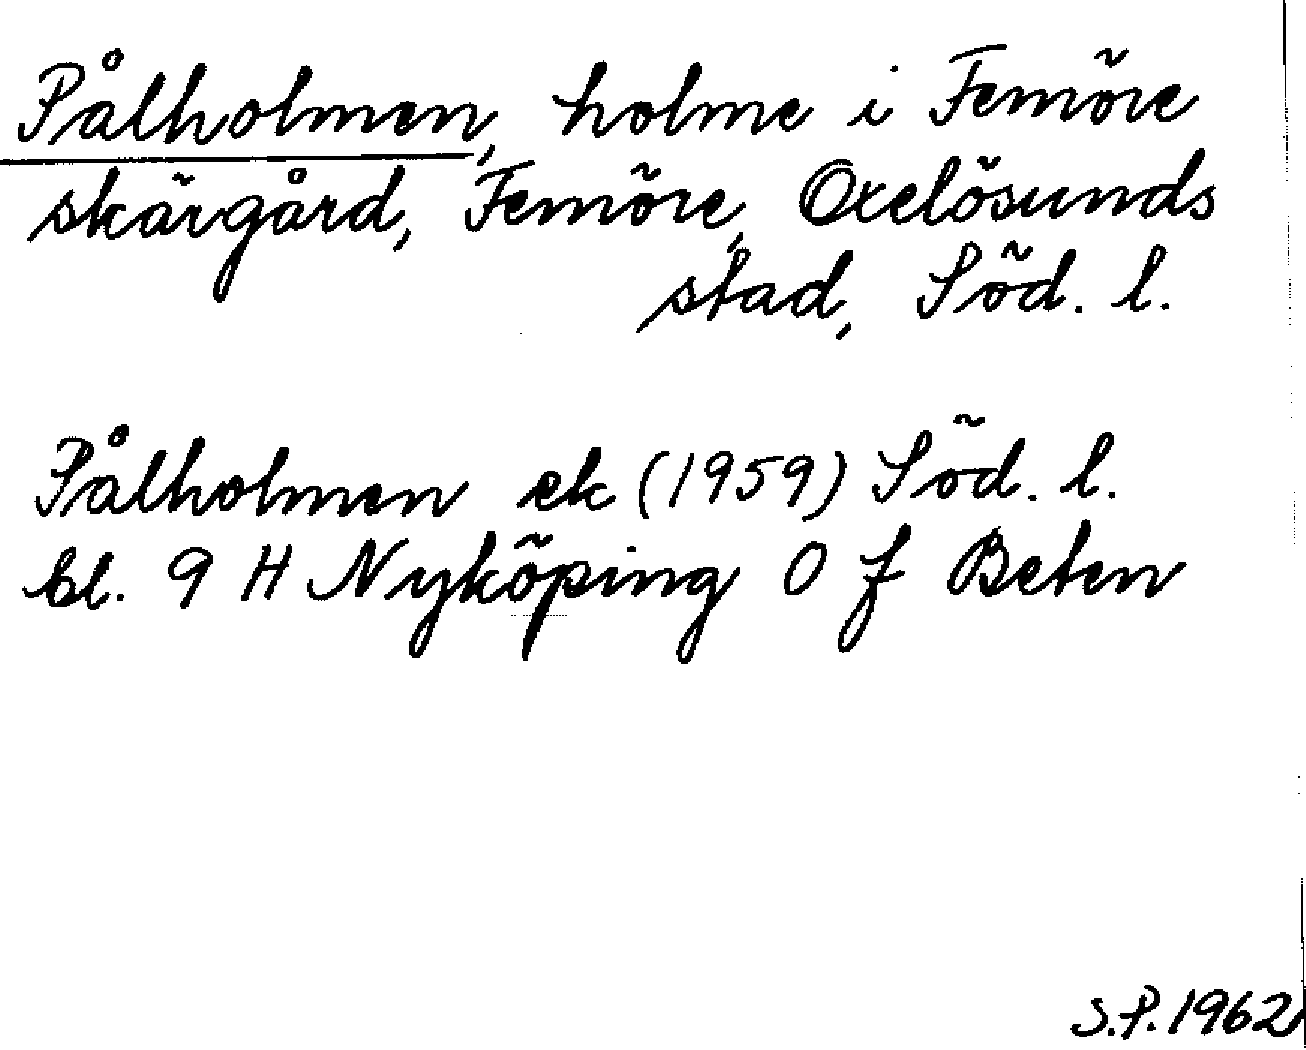 Pålholmen, holme i Femöre
skärgård, Femöre, Oxelösunds
stad, Söd. l.
Pålholmen ek (1959) Söd. l.
bl. 9 H Nyköping 0 f Beten
S.P. 1962